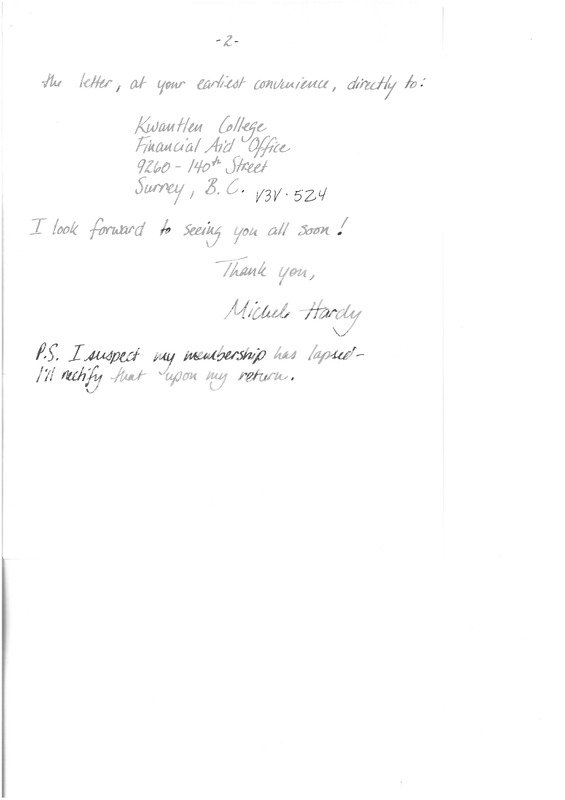 -2-
the letter, at your earliest convenience, directly to:
Kwantlen College
Financial Aid Office
9260-140th Street
Surrey, B.C. V3V·5Z4
I look forward to seeing you all soon!
Thank you,
Michele Hardy
P.S. I suspect my membership has lapsed-
I'll rectify that upon my return.